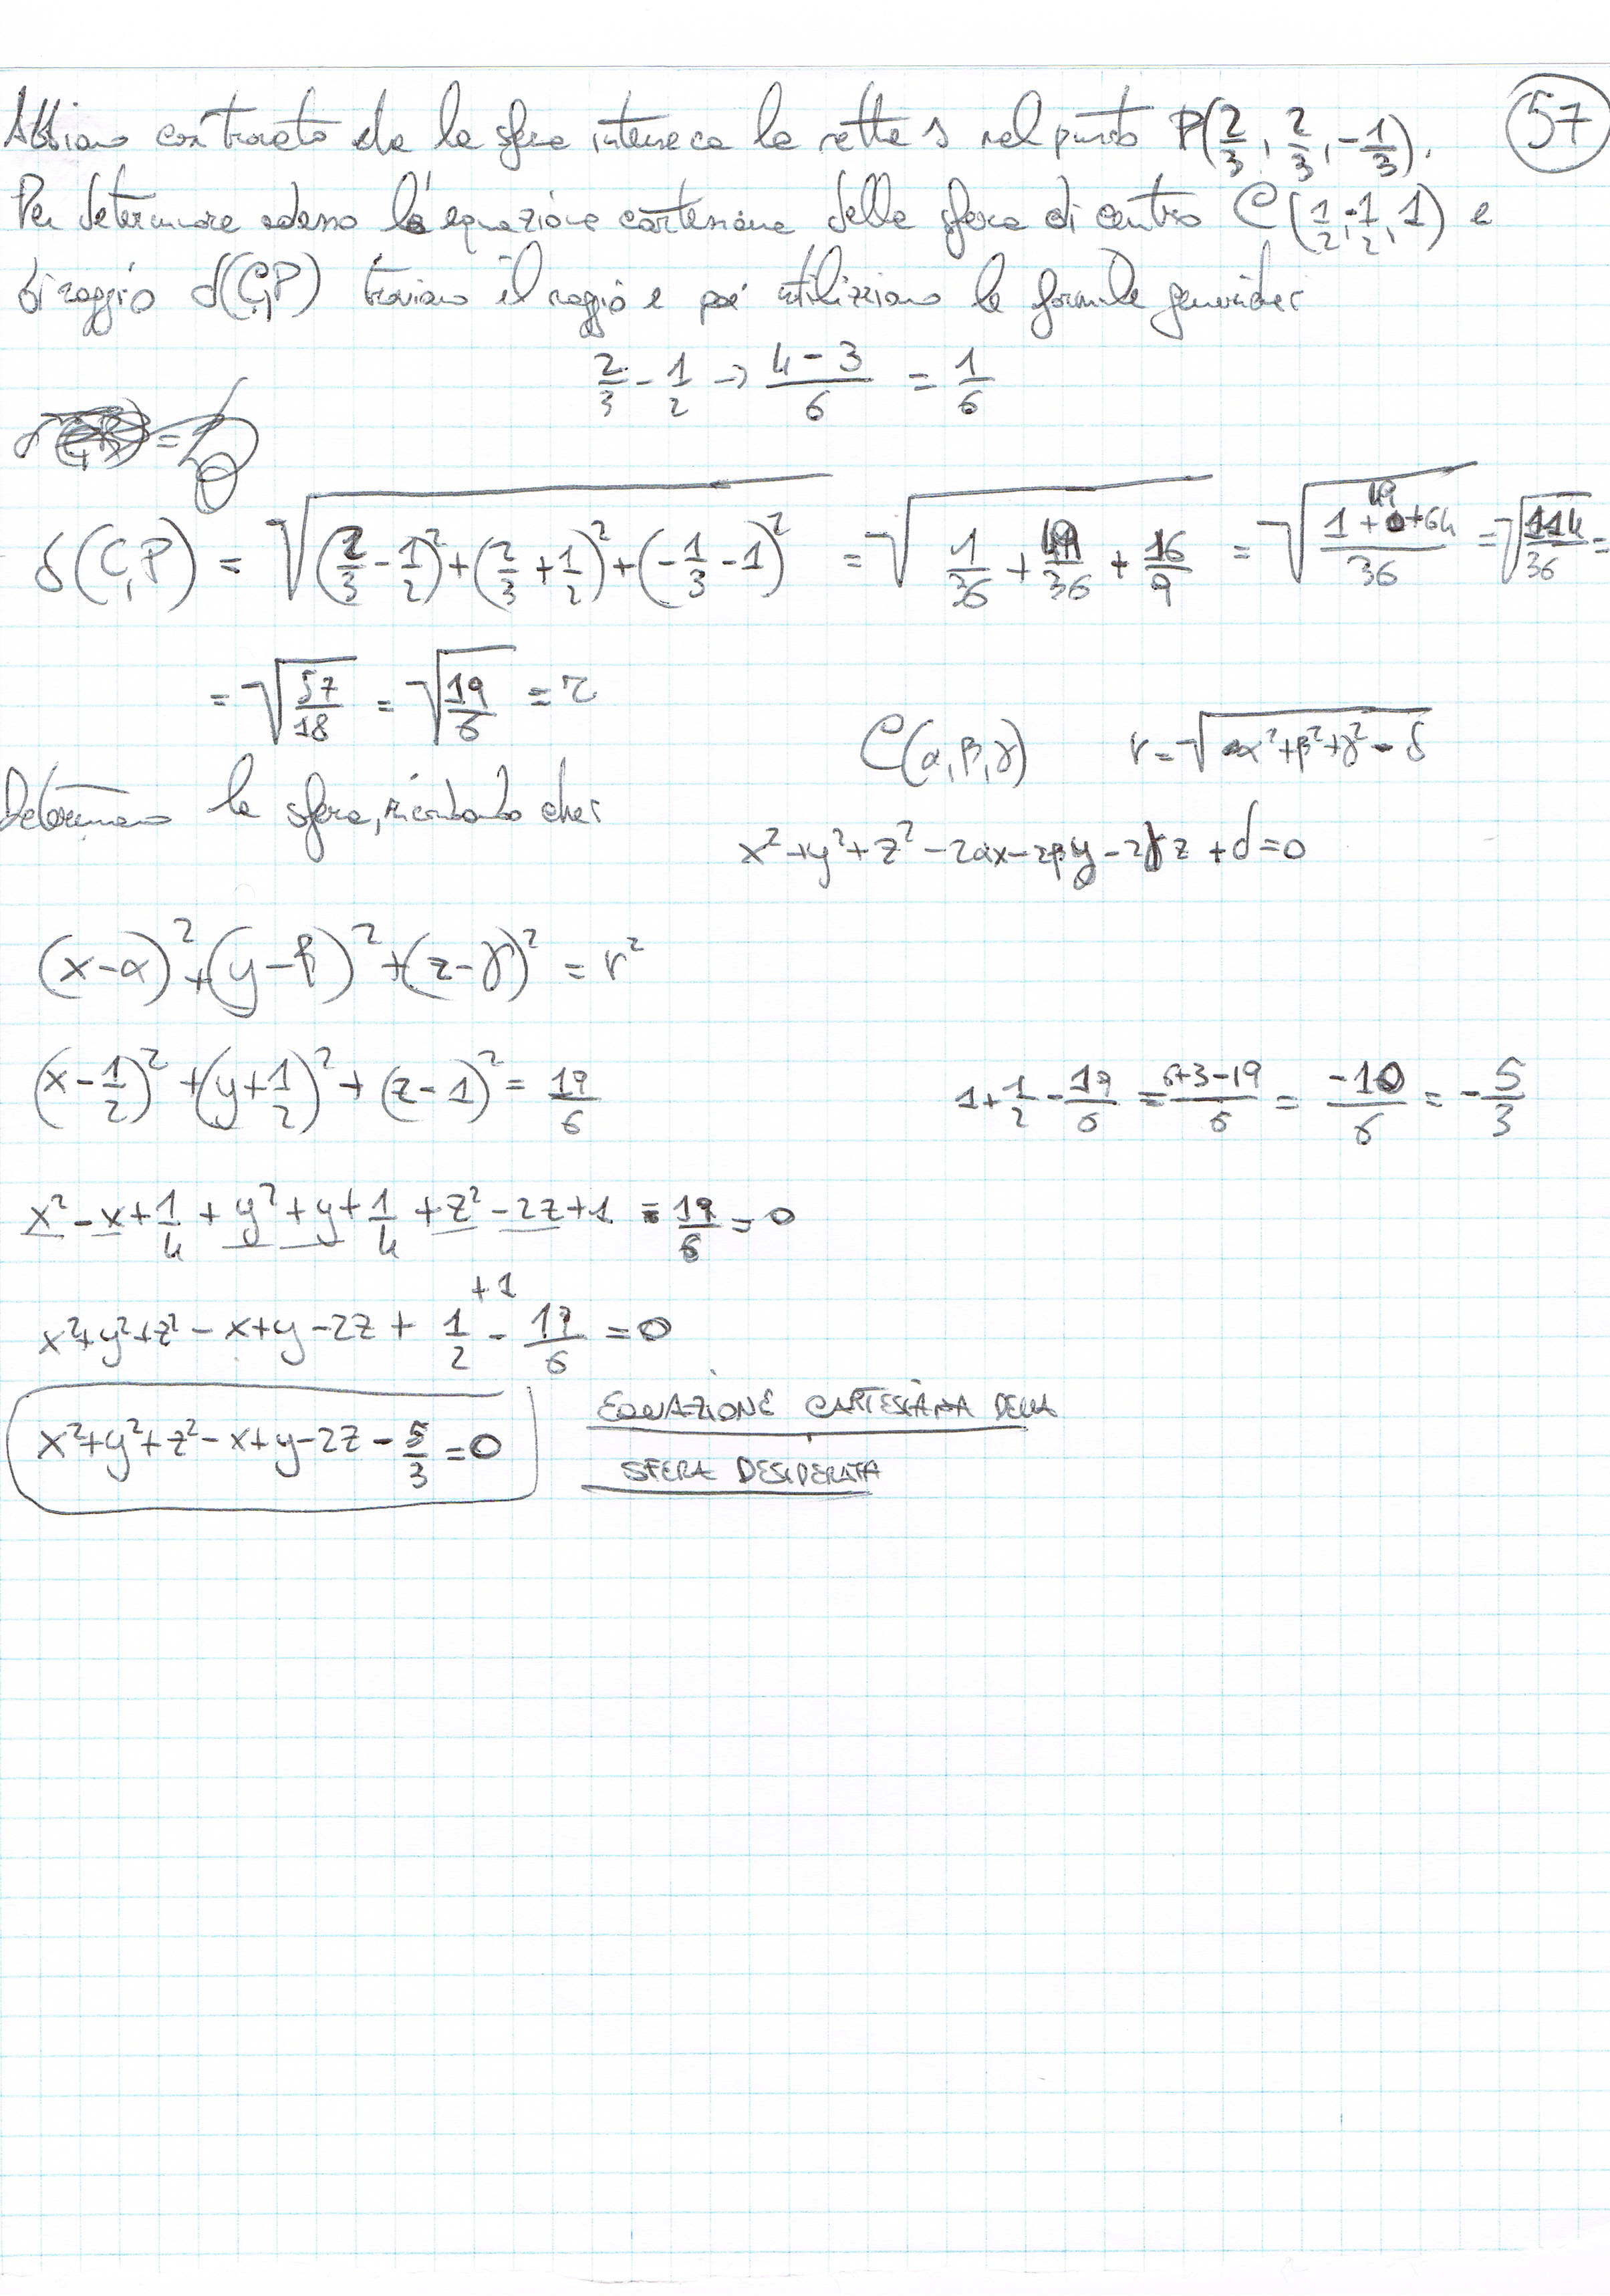 Abbiamo così trovato che la sfera interseca la retta s nel punto P(2/3, 2/3, -1/3). 57
Per determinare adesso l'equazione cartesiana della sfera di centro C(1/2, -1/2, 1) e
di raggio d(C,P) troviamo il raggio e poi utilizziamo la formula generica:
2/3 - 1/2 → (4-3)/6 = 1/6
d(C,P) = √((2/3 - 1/2)² + (2/3 + 1/2)² + (-1/3 - 1)²) = √(1/36 + 49/36 + 16/9) = √((1+49+64)/36) = √(114/36) =
= √(57/18) = √(19/6) = r
C(α,β,γ) r = √(α²+β²+γ² - d)
Determiniamo la sfera, ricordando che:
x²+y²+z²-2αx-2βy-2γz+d=0
(x-α)²+(y-β)²+(z-γ)² = r²
(x-1/2)²+(y+1/2)²+(z-1)² = 19/6 1+1/2-19/6 = (6+3-19)/6 = -10/6 = -5/3
x²-x+1/4+y²+y+1/4+z²-2z+1-19/6=0
x²+y²+z²-x+y-2z+1/2+1-19/6=0
x²+y²+z²-x+y-2z-5/3=0 EQUAZIONE CARTESIANA DELLA
SFERA DESIDERATA